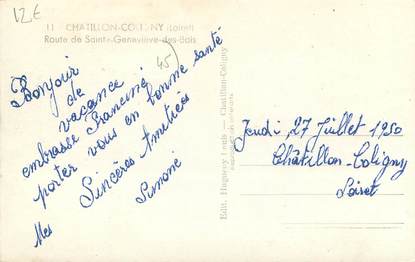 12€
11 CHATILLON-COLIGNY (Loiret)
Route de Sainte-Geneviève-des-Bois
45
Bonjour
de
vacance
embrasse Francine
porter vous en bonne santé
Mes Sincères Amitiées
Simone
Edit. Hugueny Louis — Chatillon-Coligny
Jeudi, 27 Juillet 1950
Châtillon-Coligny
Loiret